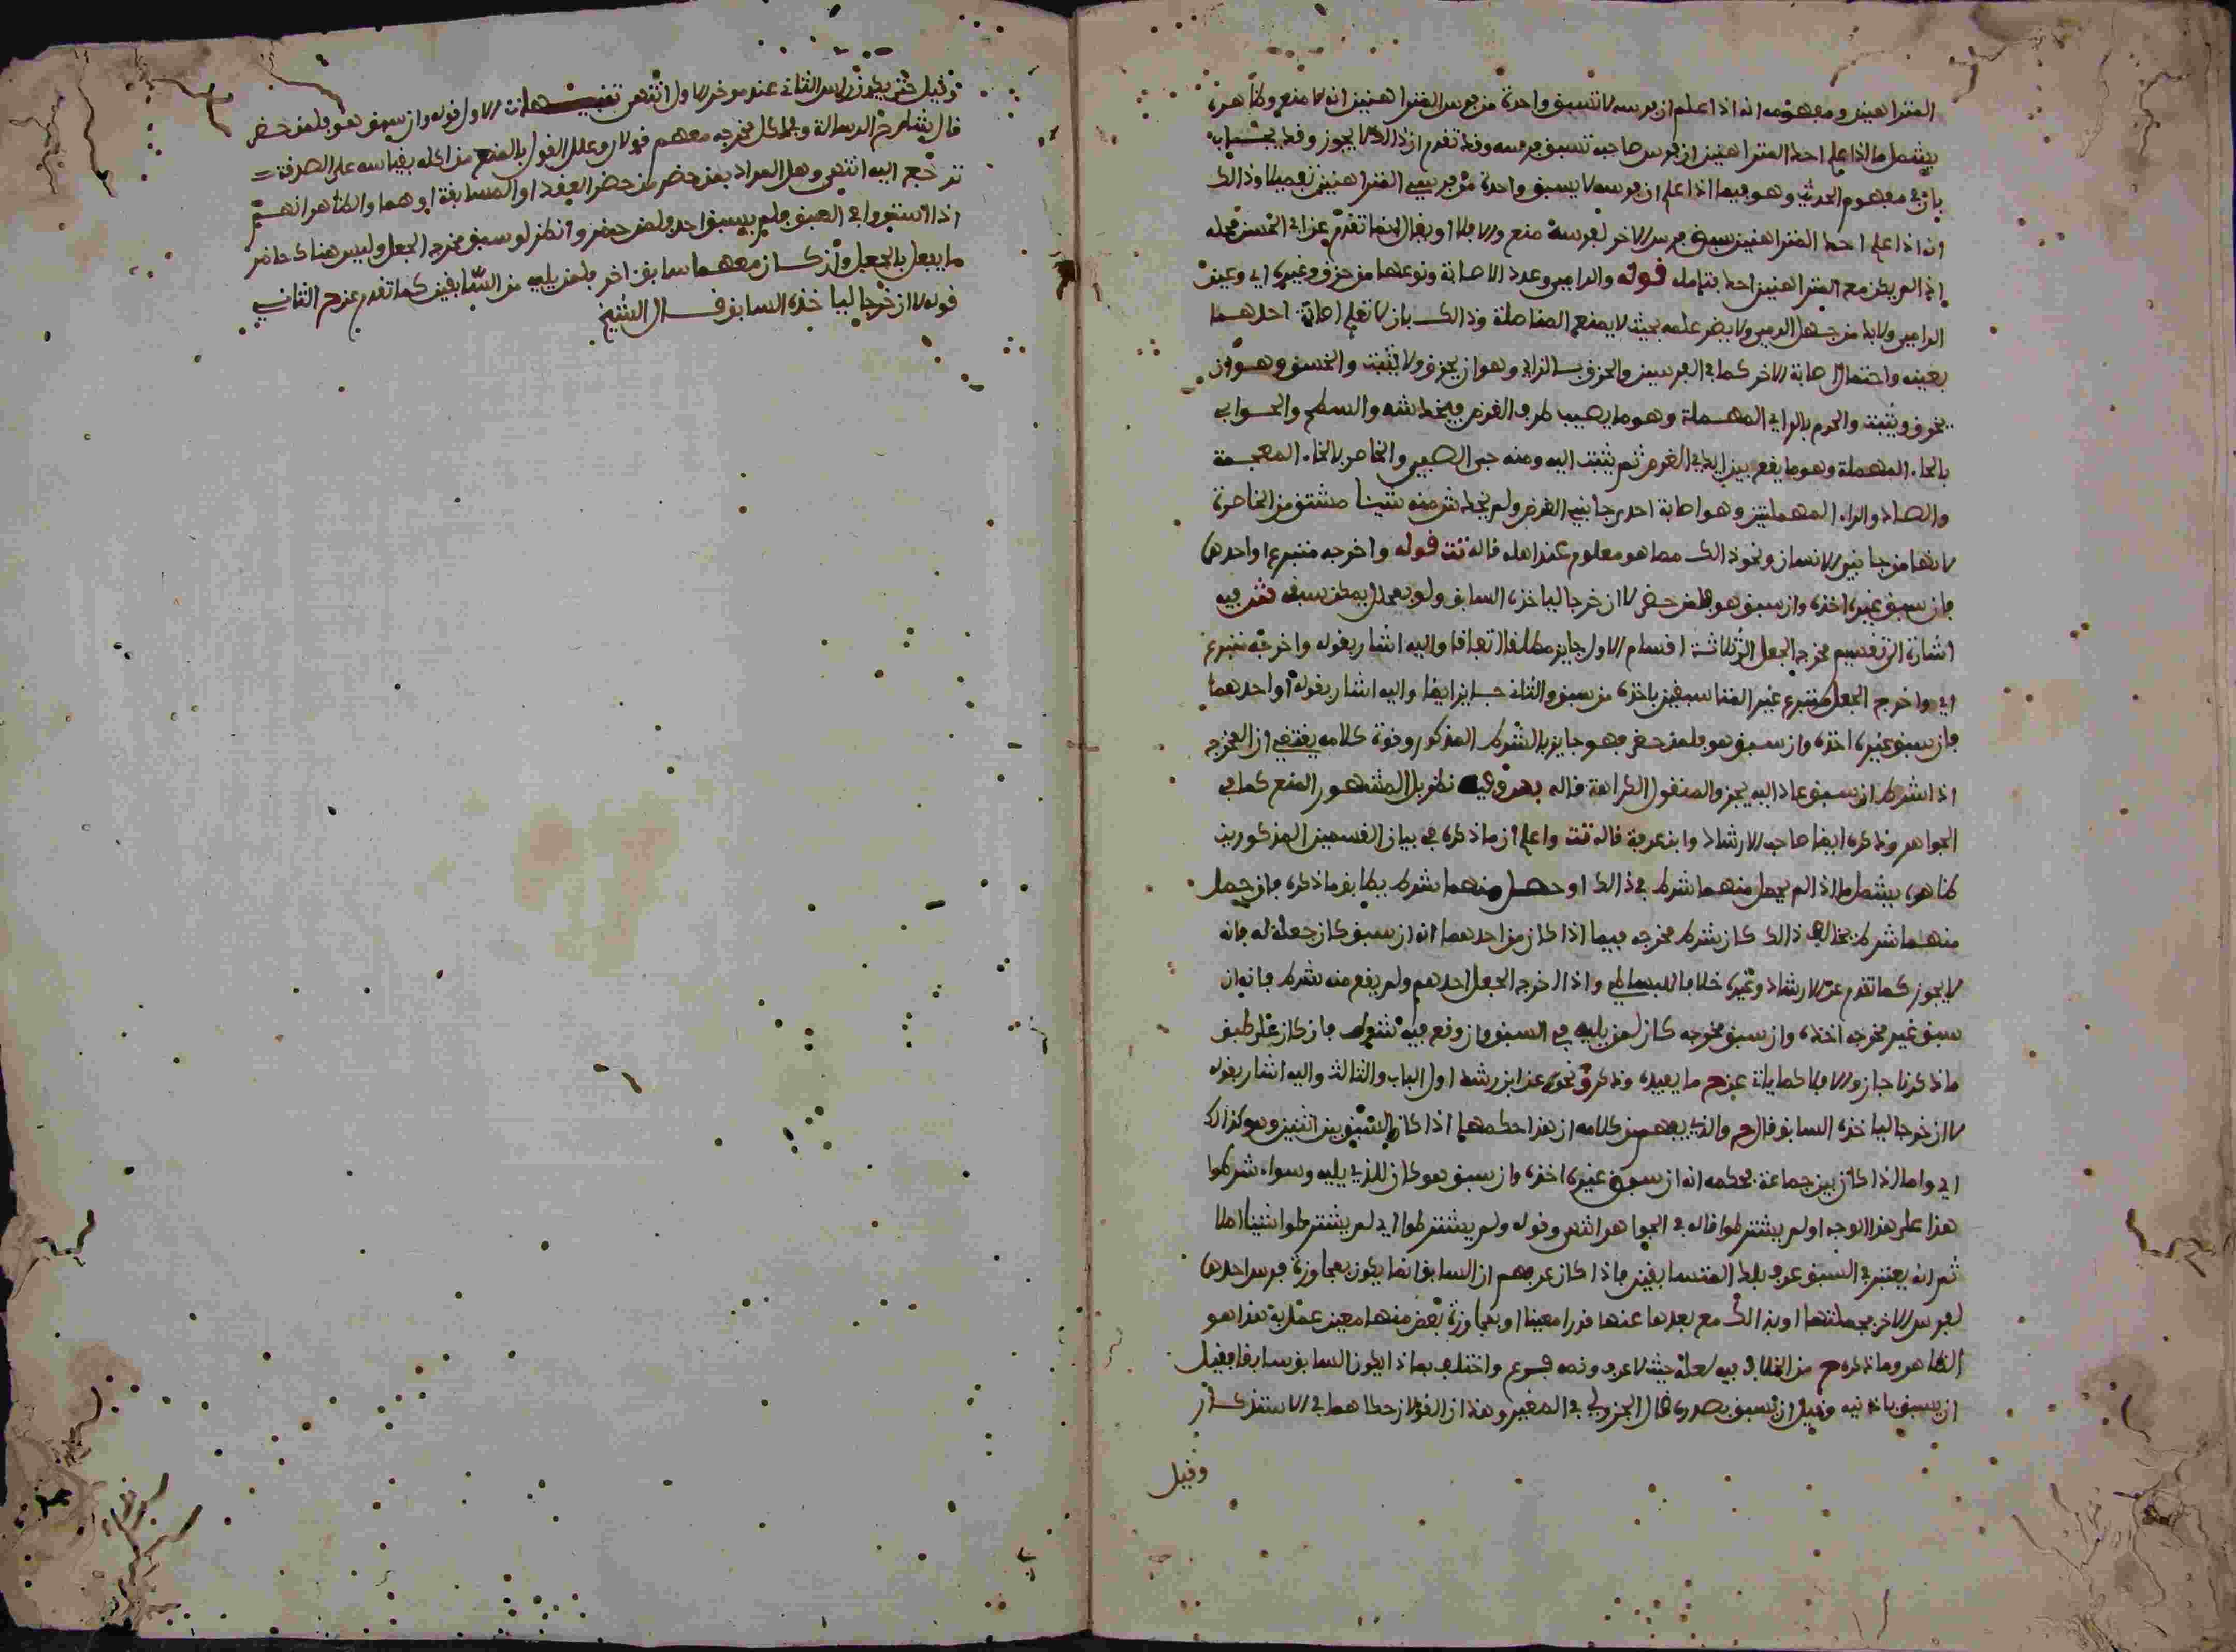 المتراهنين ومفهومه انه اذا علم ان فرسه لا تسبق واحدة من فرس المتراهنين انه لا منع وظاهره
يشمل ما اذا علم احد المتراهنين ان فرس صاحبه تسبق فرسه وقد تقدم ان ذالك لا يجوز وقد يجاب
بان في مفهوم الحديث وهو فيما اذا علم ان فرسه لا يسبق واحدة من فرسي المتراهنين تفصيلا وذالك
انه اذا علم احد المتراهنين سبق فرس الاخر لفرسه منع والا فلا او يقال انما تقدم عن ابي الحسن محله
اذا لم يكن مع المتراهنين احد بتامله قوله والرامي وعدد الاصابة ونوعها من خزق وغيره اي وعين
الرامي ولابد من جهل الرمي ولا يضر علمه بحيث لا يمنع المناضلة وذالك بان لا تعلم اصابة احدهما
بعينه واحتمال اصابة الاخر كما في الفرسين والخزق بالزاي وهو ان يخزق ولا يثبت والخسق وهو ان
يخزق ويثبت والخرم بالراي المهملة وهو ما يصيب طرف الغرض فيخدشه والسطح والحوابي
بالحاء المهملة وهو ما يقع بين ايدي الغرض ثم يثبت اليه ومنه حبى الصبي والخاصر بالخاء المعجمة
والصاد والراء المهملتين وهو اصابة احدى جانبي الغرض ولم يخدش منه شيئا مشتق من الخاصرة
لانها من جانبي الانسان ونحو ذالك مما هو معلوم عند اهله قاله تت قوله واخرجه متبرع او احدهما
فان سبق غيره اخذه وان سبق هو فلمن حضر لا ان خرجا لياخذه السابق ولو بمحلل يمكن سبقه ش فيه
اشارة الى تقسيم مخرج الجعل الى ثلاثة اقسام الاول جايز مطلقا اتفاقا واليه اشار بقوله واخرجه متبرع
اي واخرج الجعل متبرع غير المتسابقين ياخذه من سبق والثاني جايز ايضا واليه اشار بقوله او احدهما
فان سبق غيره اخذه وان سبق هو فلمن حضر فهو جايز بالشرط المذكور وقوة كلامه يقتضي ان المخرج
اذا شرط ان سبق عاد اليه لم يجز والمنقول الكراهة قاله بعض وفيه نظر بل المشهور المنع كما في
الجواهر وذكره ايضا صاحب الارشاد وابن عرفة قاله تت واعلم ان ما ذكره في بيان القسمين المذكورين
ظاهره يشمل ما اذا لم يحصل منهما شرط في ذالك او حصل منهما شرط يطابق ما ذكره فان حصل
منهما شرط يخالف ذالك كان شرط مخرجه فيما اذا كان من احدهما انه ان سبق كان جعله له فانه
لا يجوز كما تقدم عن الارشاد وغيره خلافا للبساطي واذا اخرج الجعل احدهم ولم يقع منه شرط فانه ان
سبق غير مخرجه اخذه وان سبق مخرجه كان لمن يليه في السبق وان وقع فيه شرط فان كان على طبق
ما ذكرنا جاز والا فلا كما ياتي عن ح ما يفيده وذكر ق نحوه عن ابن رشد اول الباب والثالث واليه اشار بقوله
لا ان خرجا لياخذه السابق قال ح والذي يفهم من كلامه ان هذا حكمهما اذا كان السبق بين اثنين وهو كذالك
اي واما اذا كان بين جماعة فحكمه انه ان سبق غيره اخذه وان سبق هو كان للذي يليه وسواء شرطوا
هذا على هذا الوجه او لم يشترطوا قاله في الجواهر انتهى وقوله ولم يشترطوا اي لم يشترطوا شيئا اصلا
ثم انه يعتبر في السبق عرف بلد المتسابقين فاذا كان عرفهم ان السابق انما يكون بمجاوزة فرس احدهما
لفرس الاخر بجملتها او بذالك مع بعدها عنها قدرا معينا او بمجاوزة بعض منها معين عمل به هذا هو
الظاهر وما ذكره ح من الخلاف فيه لعله حيث لا عرف ونصه فرع واختلف بماذا يكون السابق سابقا فقيل
ان سبق باذنيه وقيل ان سبق بصدره قال الجزولي في المغير وهذان القولان حكاهما في الاستذكار
وقيل
وقيل حتى يكون راس الثاني عند موخر الاول انتهى تنبيهات الاول قوله وان سبق هو فلمن حضر
قال شارح الرسالة وهل كل مخرجه معهم قولان وعلل القول بالمنع من اكله بقياسه على الصدقة
ترجع اليه انتهى وهل المراد بمن حضر من حضر العقد او المسابقة او هما والظاهر انهم
اذا استووا في السبق ولم يسبق احد فلمن حضر وانظر لو سبق مخرج الجعل وليس هناك حاضر
ما يفعل بالجعل وان كان معهما سابق اخر فلمن يليه من السابقين كما تقدم عن ح الثاني
قوله لا ان خرجا لياخذه السابق قال الشيخ